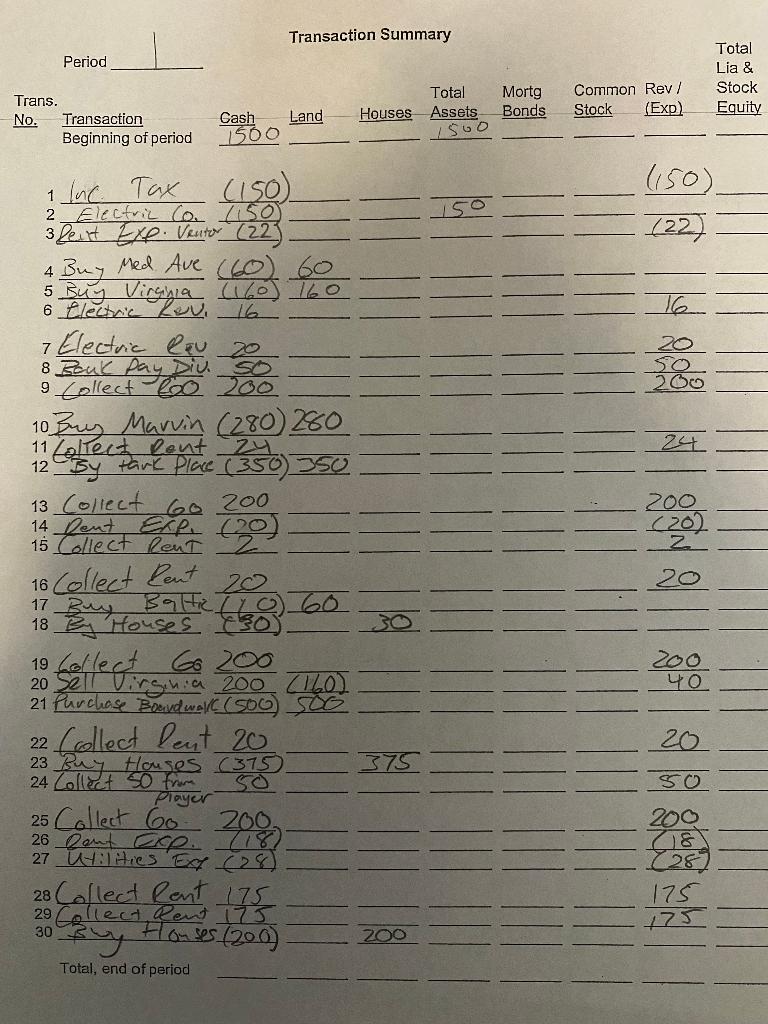 Transaction Summary
Period 1
Total
Total Mortg Common Rev / Lia &
Trans. Stock
No. Transaction Cash Land Houses Assets Bonds Stock (Exp) Equity
Beginning of period 1500 1500
1 Inc. Tax (150) (150)
2 Electric Co. (150) 150
3 Rent Exp. Ventor (22) (22)
4 Buy Med Ave (60) 60
5 Buy Virginia (160) 160
6 Electric Rev. 16 16
7 Electric Rev 20 20
8 Bank Pay Div. 50 50
9 Collect 200 200
10 Buy Marvin (280) 280
11 Collect Rent 24 24
12 By Park Place (350) 350
13 Collect Go 200 200
14 Rent Exp. (20) (20)
15 Collect Rent 2 2
16 Collect Rent 20 20
17 Buy Baltic 60
18 By Houses (30) 30
19 Collect Go 200 200
20 Sell Virginia 200 (160) 40
21 Purchase Boardwalk (500) 500
22 Collect Rent 20 20
23 Buy Houses (375) 375
24 Collect 50 from 50 50
Player
25 Collect Go 200 200
26 Rent Exp. (18) (18)
27 Utilities Exp (28) (28)
28 Collect Rent 175 175
29 Collect Rent 175 175
30 Buy Houses (200) 200
Total, end of period